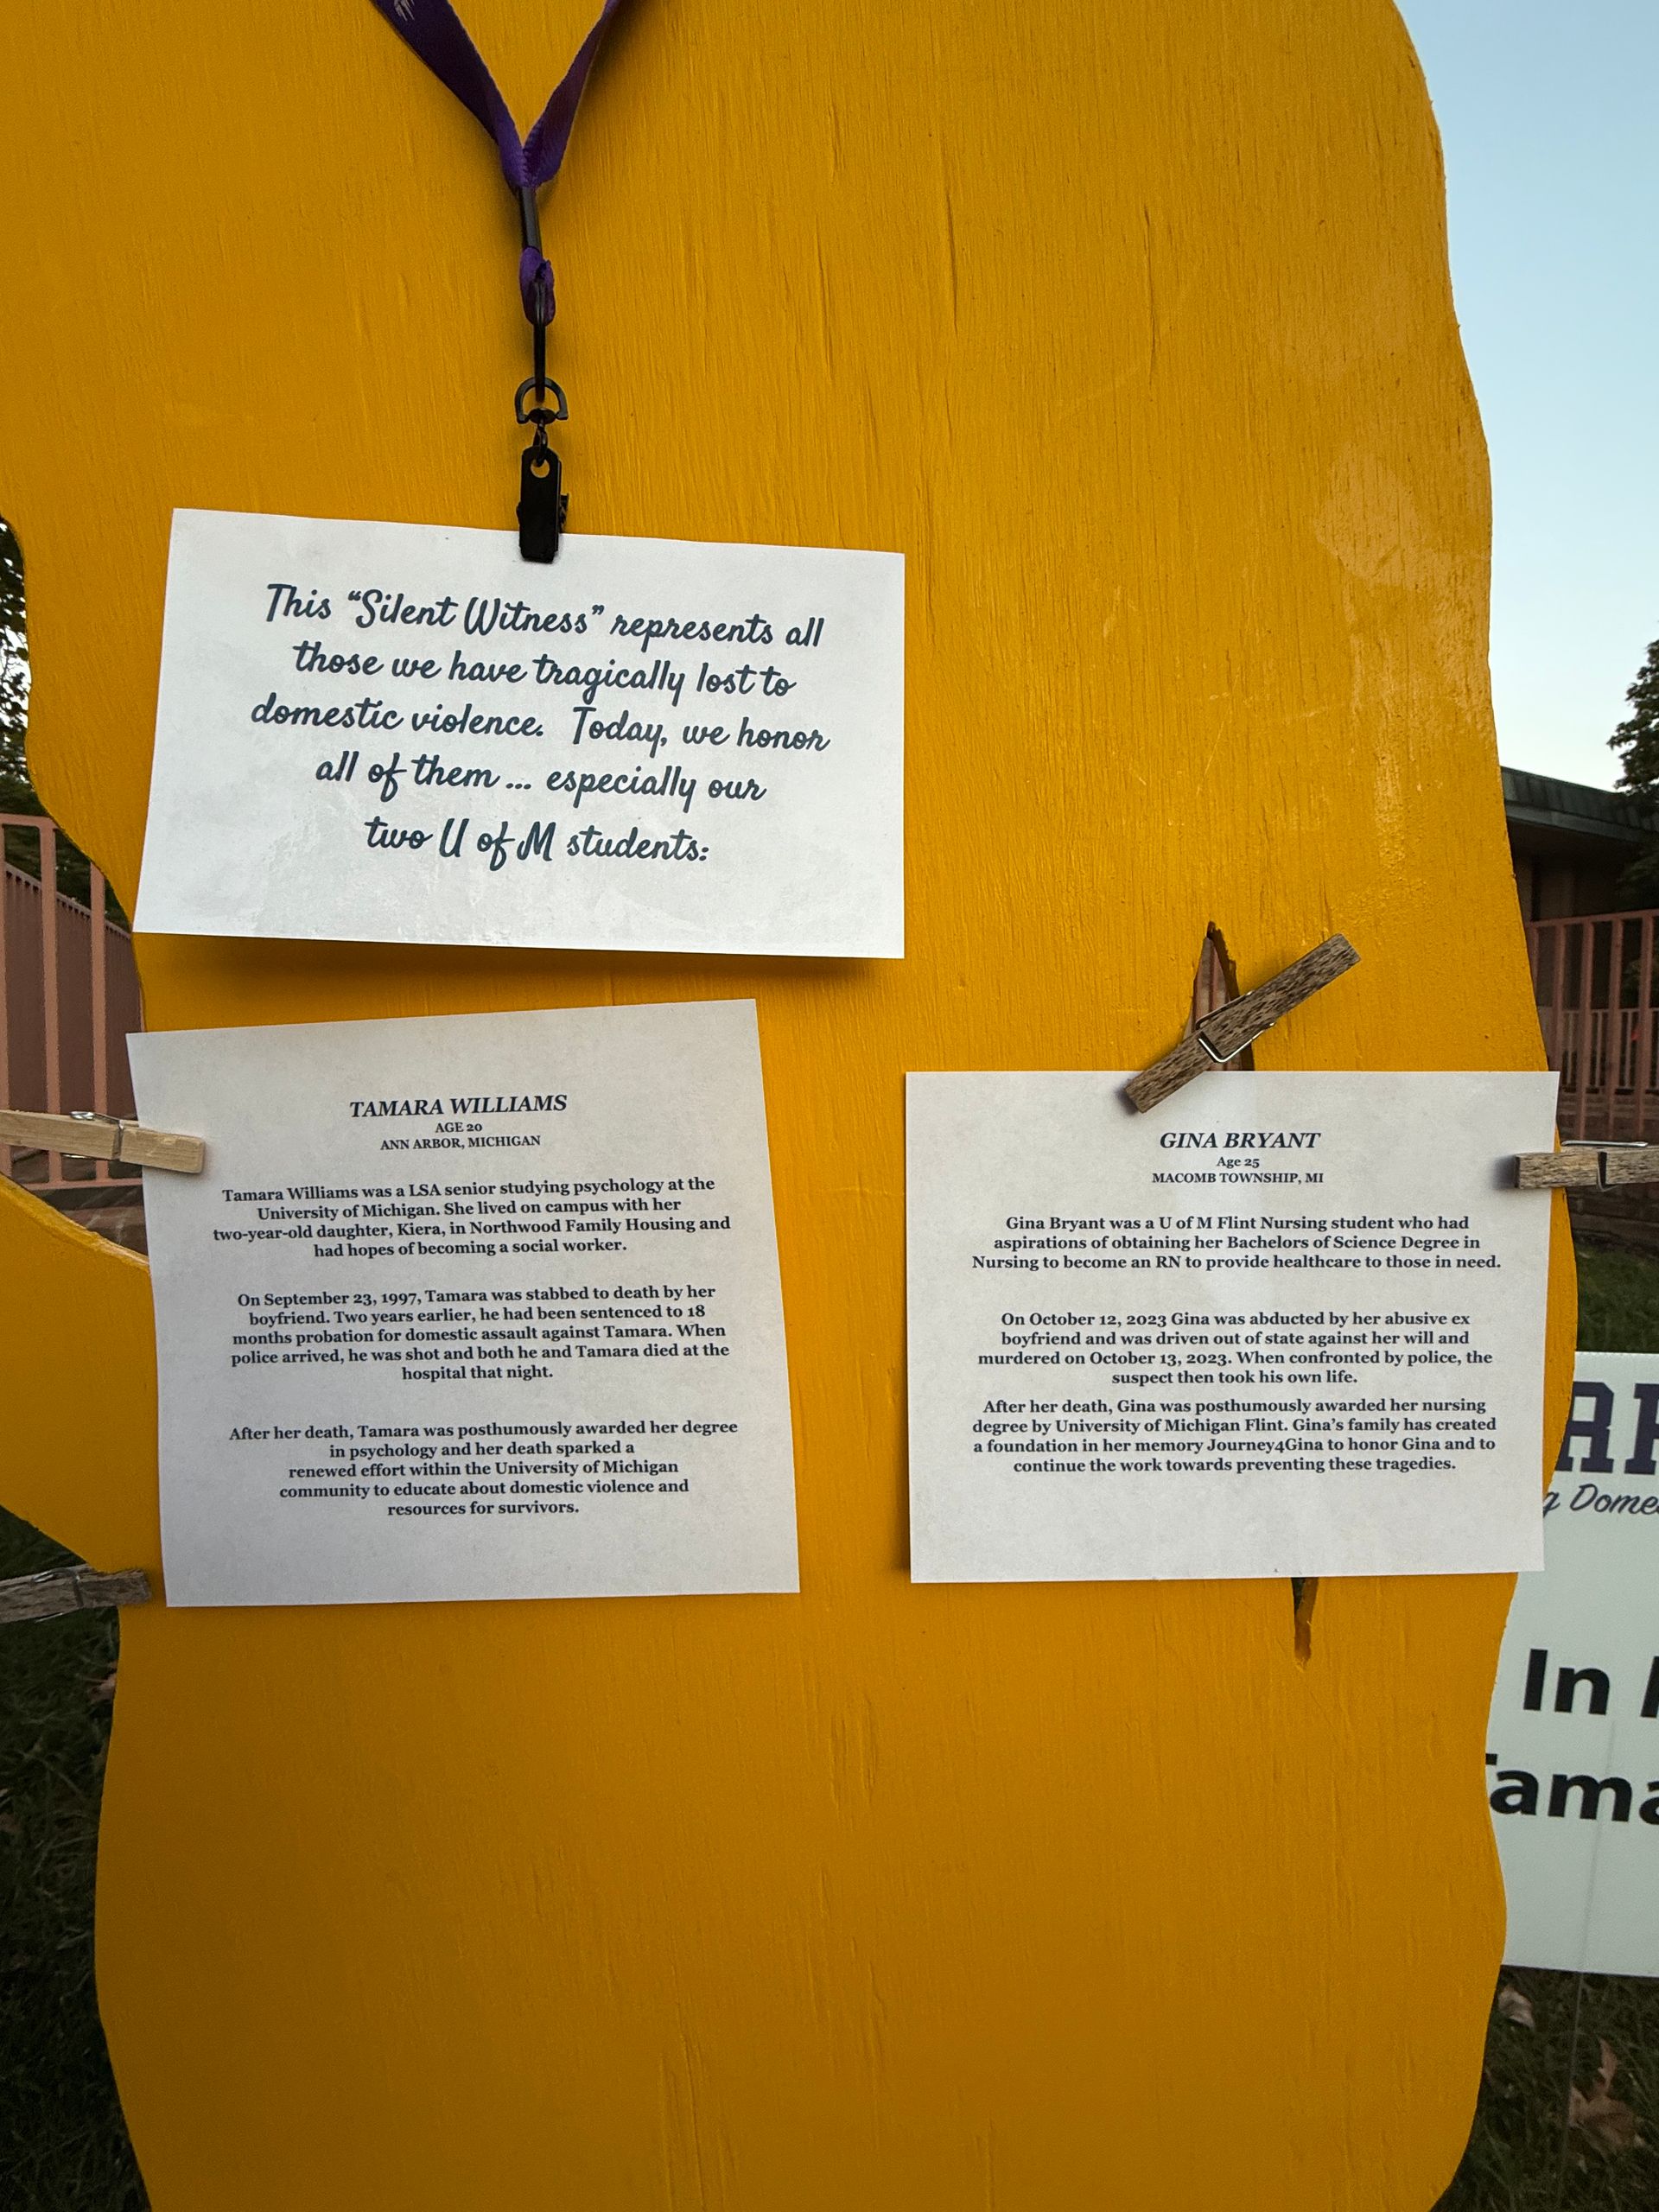 This “Silent Witness” represents all
those we have tragically lost to
domestic violence. Today, we honor
all of them ... especially our
two U of M students:
TAMARA WILLIAMS
AGE 20
ANN ARBOR, MICHIGAN
Tamara Williams was a LSA senior studying psychology at the
University of Michigan. She lived on campus with her
two-year-old daughter, Kiera, in Northwood Family Housing and
had hopes of becoming a social worker.
On September 23, 1997, Tamara was stabbed to death by her
boyfriend. Two years earlier, he had been sentenced to 18
months probation for domestic assault against Tamara. When
police arrived, he was shot and both he and Tamara died at the
hospital that night.
After her death, Tamara was posthumously awarded her degree
in psychology and her death sparked a
renewed effort within the University of Michigan
community to educate about domestic violence and
resources for survivors.
GINA BRYANT
Age 25
MACOMB TOWNSHIP, MI
Gina Bryant was a U of M Flint Nursing student who had
aspirations of obtaining her Bachelors of Science Degree in
Nursing to become an RN to provide healthcare to those in need.
On October 12, 2023 Gina was abducted by her abusive ex
boyfriend and was driven out of state against her will and
murdered on October 13, 2023. When confronted by police, the
suspect then took his own life.
After her death, Gina was posthumously awarded her nursing
degree by University of Michigan Flint. Gina’s family has created
a foundation in her memory Journey4Gina to honor Gina and to
continue the work towards preventing these tragedies.
In